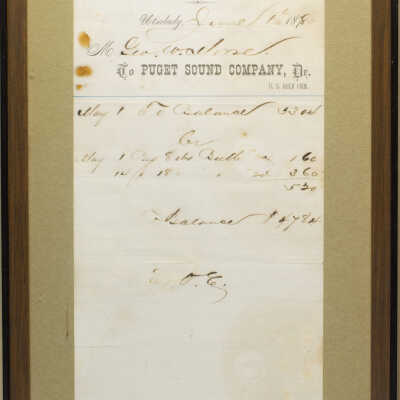 Utsalady, June 1st 188
M Geo. W. Morse
To PUGET SOUND COMPANY, Dr.
U. S. GOLD COIN.
May 1 To Balance 53 04
Cr
May 1 By 8 lbs Butter 20 1 60
14 " 18 " " 20 3 60
5 20
Balance $ 47 84
E. & O. E.